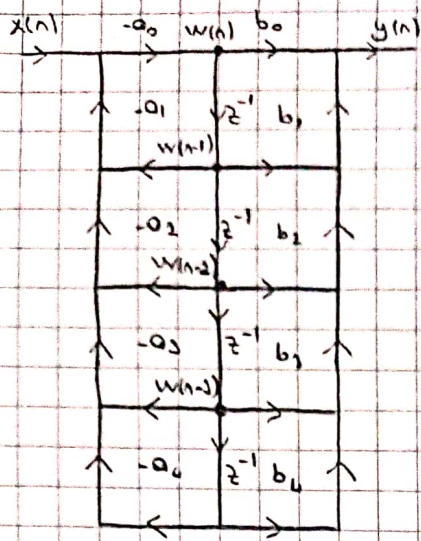 x(n) -a₀ w(n) b₀ y(n)
-a₁ z⁻¹ b₁
w(n-1)
-a₂ z⁻¹ b₂
w(n-2)
-a₃ z⁻¹ b₃
w(n-3)
-a₄ z⁻¹ b₄